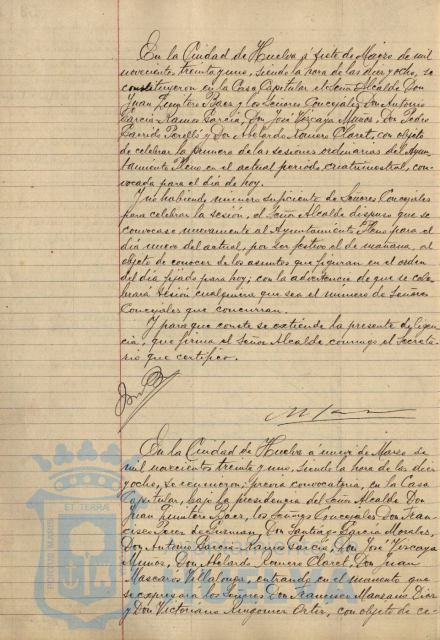 En la Ciudad de Huelva á siete de Marzo de mil
novecientos treinta y uno, siendo la hora de las diez y ocho, se
constituyeron en la Casa Capitular el Señor Alcalde Don
Juan Quintero Báez y los Señores Concejales Don Antonio
García Ramos García, Don José Vizcaya Muñoz, Don Pedro
Garrido Perelló y Don Abelardo Romero Claret, con objeto
de celebrar la primera de las sesiones ordinarias del Ayun-
tamiento Pleno en el actual periodo cuatrimestral, con-
vocada para el día de hoy.
Y no habiendo número suficiente de Señores Concejales
para celebrar la sesión, el Señor Alcalde dispuso que se
convocase nuevamente al Ayuntamiento Pleno para el
día nueve del actual, por ser festivo el de mañana, al
objeto de conocer de los asuntos que figuran en el orden
del día fijado para hoy; con la advertencia de que se cele-
brará sesión cualquiera que sea el número de Señores
Concejales que concurran.
Y para que conste se extiende la presente diligen-
cia, que firma el Señor Alcalde conmigo el Secreta-
rio que certifico.
En la Ciudad de Huelva á nueve de Marzo de
mil novecientos treinta y uno, siendo la hora de las diez
y ocho, se reunieron, previa convocatoria, en la Casa
Capitular, bajo la presidencia del Señor Alcalde Don
Juan Quintero Báez, los Señores Concejales Don Fran-
cisco Pérez de Guzmán, Don Santiago García Morales,
Don Antonio García Ramos García, Don José Vizcaya
Muñoz, Don Abelardo Romero Claret, Don Juan
Mascarós Villalonga, entrando en el momento que
se expresará los Señores Don Francisco Manzano Díaz
y Don Victoriano Ortiz, con objeto de ce-
ET TERRÆ